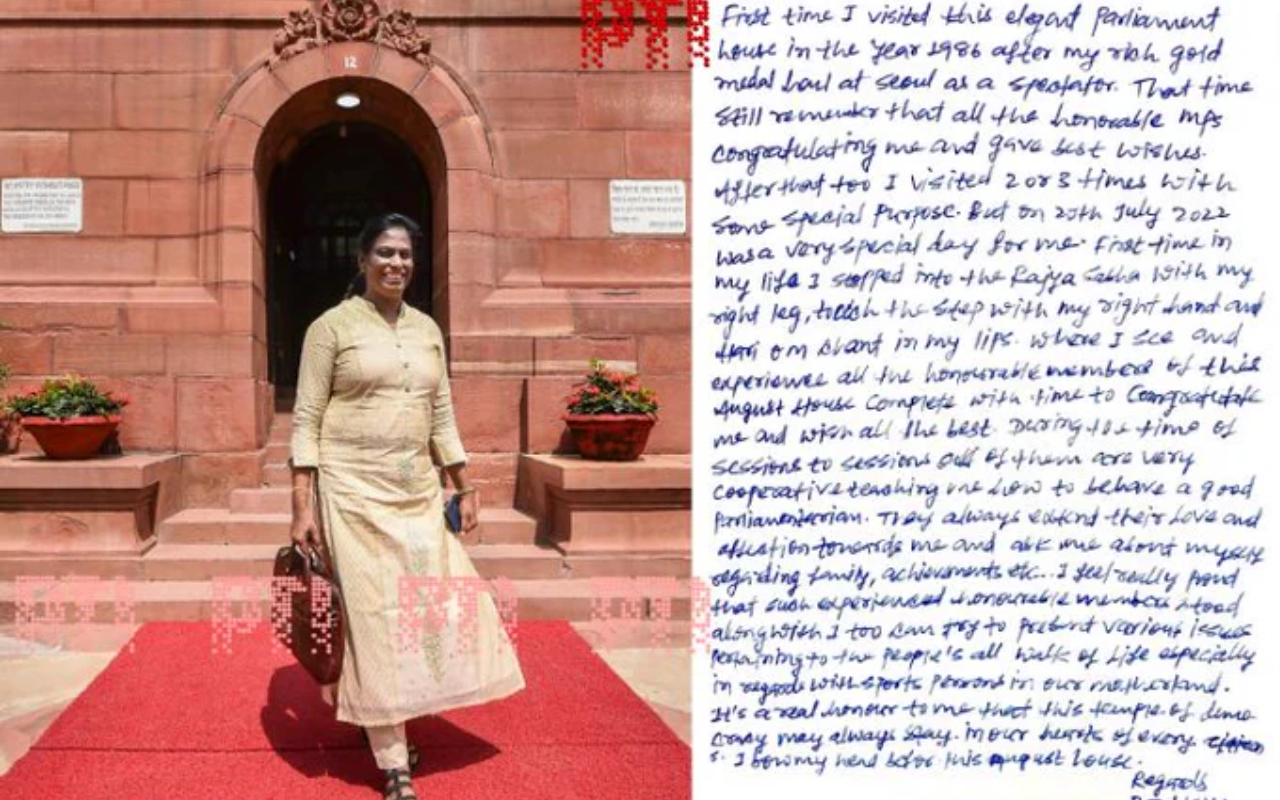 12
PTI
First time I visited this elegant Parliament
house in the Year 1986 after my rich gold
medal haul at seoul as a spectator. That time
still remember that all the honorable MPs
Congratulating me and gave best wishes.
After that too I visited 2 or 3 times with
some special purpose. But on 20th July 2022
was a very special day for me. First time in
my life I stepped into the Rajya Sabha with my
right leg, touch the step with my right hand and
Hari om chant in my lips. where I see and
experience all the honourable members of this
August House Complete with time to Congratulate
me and wish all the best. During the time of
sessions to sessions all of them are very
cooperative teaching me how to behave a good
Parliamentarian. They always extend their Love and
affection towards me and ask me about myself
regarding family, achievements etc.. I feel really proud
that such experienced honourable members stood
along with I too can try to present various issues
Pertaining to the People's all walk of Life especially
in regards with sports persons in our motherland.
It's a real honour to me that this temple of demo
cracy may always stay in our hearts of every
s. I bow my head before this august house.
Regards